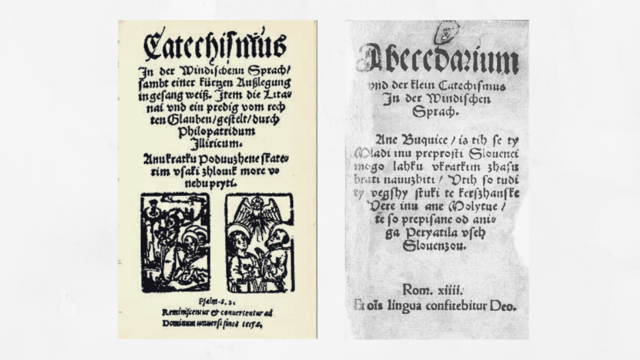 Catechismus
In der Windischenn Sprach/
sambt einer kürtzen Außlegung
in gesang weiß. Item die Lita-
nai vnd ein predig vom rech
ten Glauben/gestelt/durch
Philopatridum
Illiricum.
Anu kratku Poduuzhene skate-
rim vsaki zhlouik more ve
nebu pryti.
Psalm.
Reminiscentur & conuertentur ad
Dominum vniuersi fines terræ.
Abecedarium
vnd der klein Catechismus
In der Windischen
Sprach.
Ane Buquice/ia tih se ty
Mladi inu preprosti Slouenci
mogo lahku vkratkim zhasu
brati nauuzhiti/Vtih so tudi
ty vegshy stuki te kerszhanske
Vere inu ane Molytue/
te so prepisane od ani-
ga Peryatila vseh
Slouenzou.
Rom. xiiii.
Et oīs lingua confitebitur Deo.